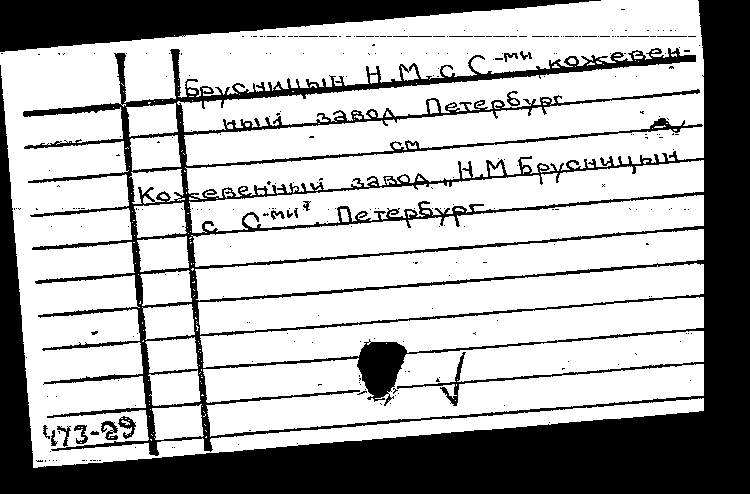 Брусницын Н.М. с С-ми, кожевен-
ный завод Петербург
см
Кожевенный завод „Н.М Брусницын
с С-ми". Петербург
473-29